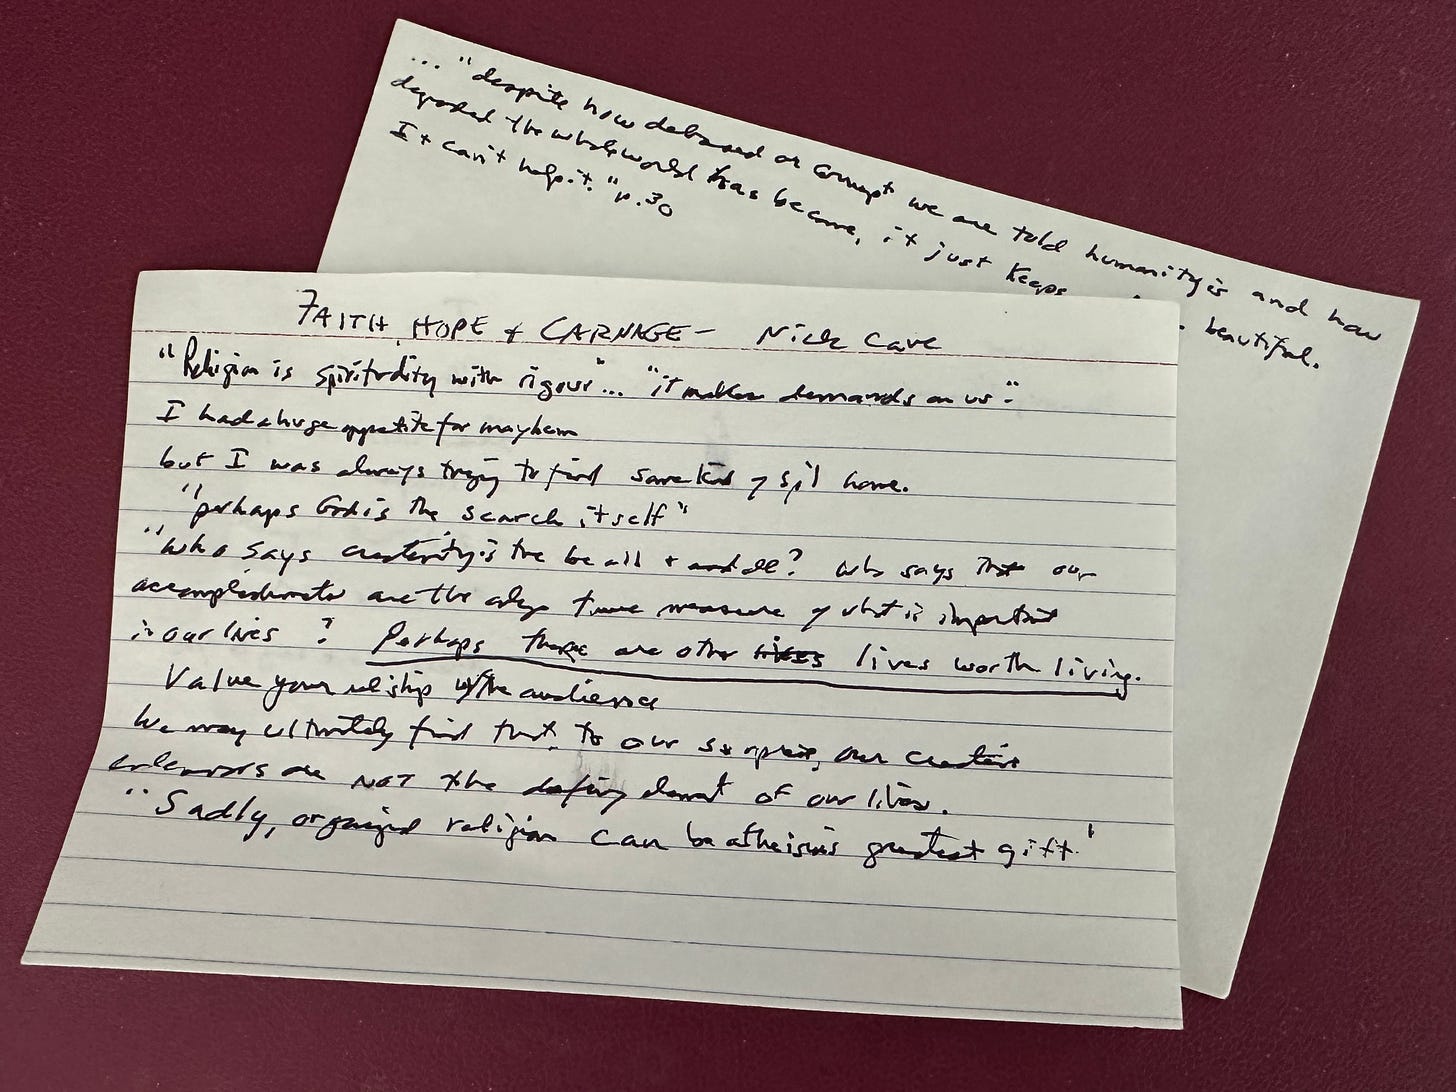 ... "despite how debased or corrupt we are told humanity is and how
degraded the whole world has become, it just keeps beautiful.
It can't help it." p.30
FAITH, HOPE + CARNAGE — Nick Cave
"Religion is spirituality with rigour"... "it makes demands on us"
I had a huge appetite for mayhem
but I was always trying to find some kind of sp'l home.
"perhaps God is the search itself"
"Who says creativity is the be all + end all? Who says that our
accomplishments are the only true measure of what is important
in our lives? Perhaps there are other lives worth living.
Value your rel'ship w/the audience
We may ultimately find that, to our surprise, our creative
endeavors are NOT the defining element of our lives.
"Sadly, organized religion can be atheism's greatest gift"